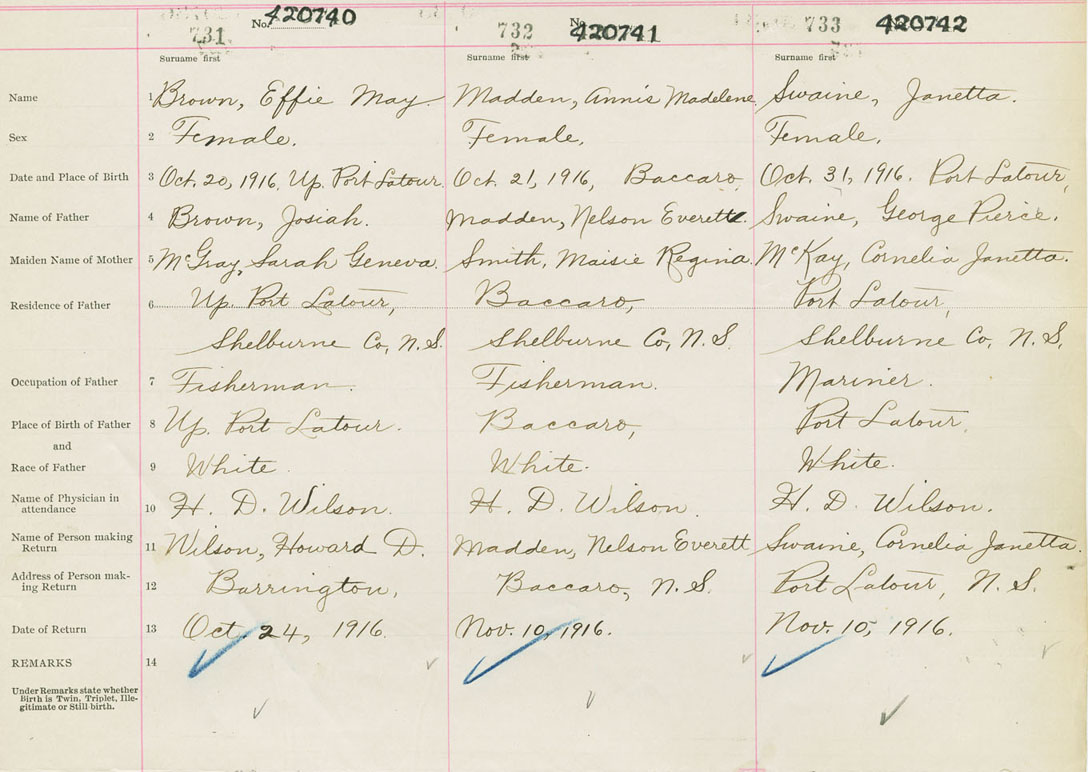 No. 420740 No 420741 420742
731 732 733
Surname first Surname first Surname first
Name 1 Brown, Effie May Madden, Annis Madelene Swaine, Janetta.
Sex 2 Female. Female. Female.
Date and Place of Birth 3 Oct. 20, 1916, Up. Port Latour. Oct. 21, 1916, Baccaro, Oct. 31, 1916. Port Latour,
Name of Father 4 Brown, Josiah. Madden, Nelson Everett. Swaine, George Pierce.
Maiden Name of Mother 5 McGray, Sarah Geneva. Smith, Maisie Regina. McKay, Cornelia Janetta.
Residence of Father 6 Up. Port Latour, Baccaro, Port Latour,
Shelburne Co, N.S. Shelburne Co, N.S. Shelburne Co, N.S.
Occupation of Father 7 Fisherman. Fisherman. Mariner.
Place of Birth of Father 8 Up. Port Latour. Baccaro, Port Latour,
and
Race of Father 9 White. White. White.
Name of Physician in
attendance 10 H. D. Wilson. H. D. Wilson. H. D. Wilson.
Name of Person making
Return 11 Wilson, Howard D. Madden, Nelson Everett Swaine, Cornelia Janetta.
Address of Person mak-
ing Return 12 Barrington, Baccaro, N.S. Port Latour, N.S.
Date of Return 13 Oct. 24, 1916. Nov. 10, 1916. Nov. 10, 1916.
REMARKS 14
Under Remarks state whether
Birth is Twin, Triplet, Ille-
gitimate or Still birth.